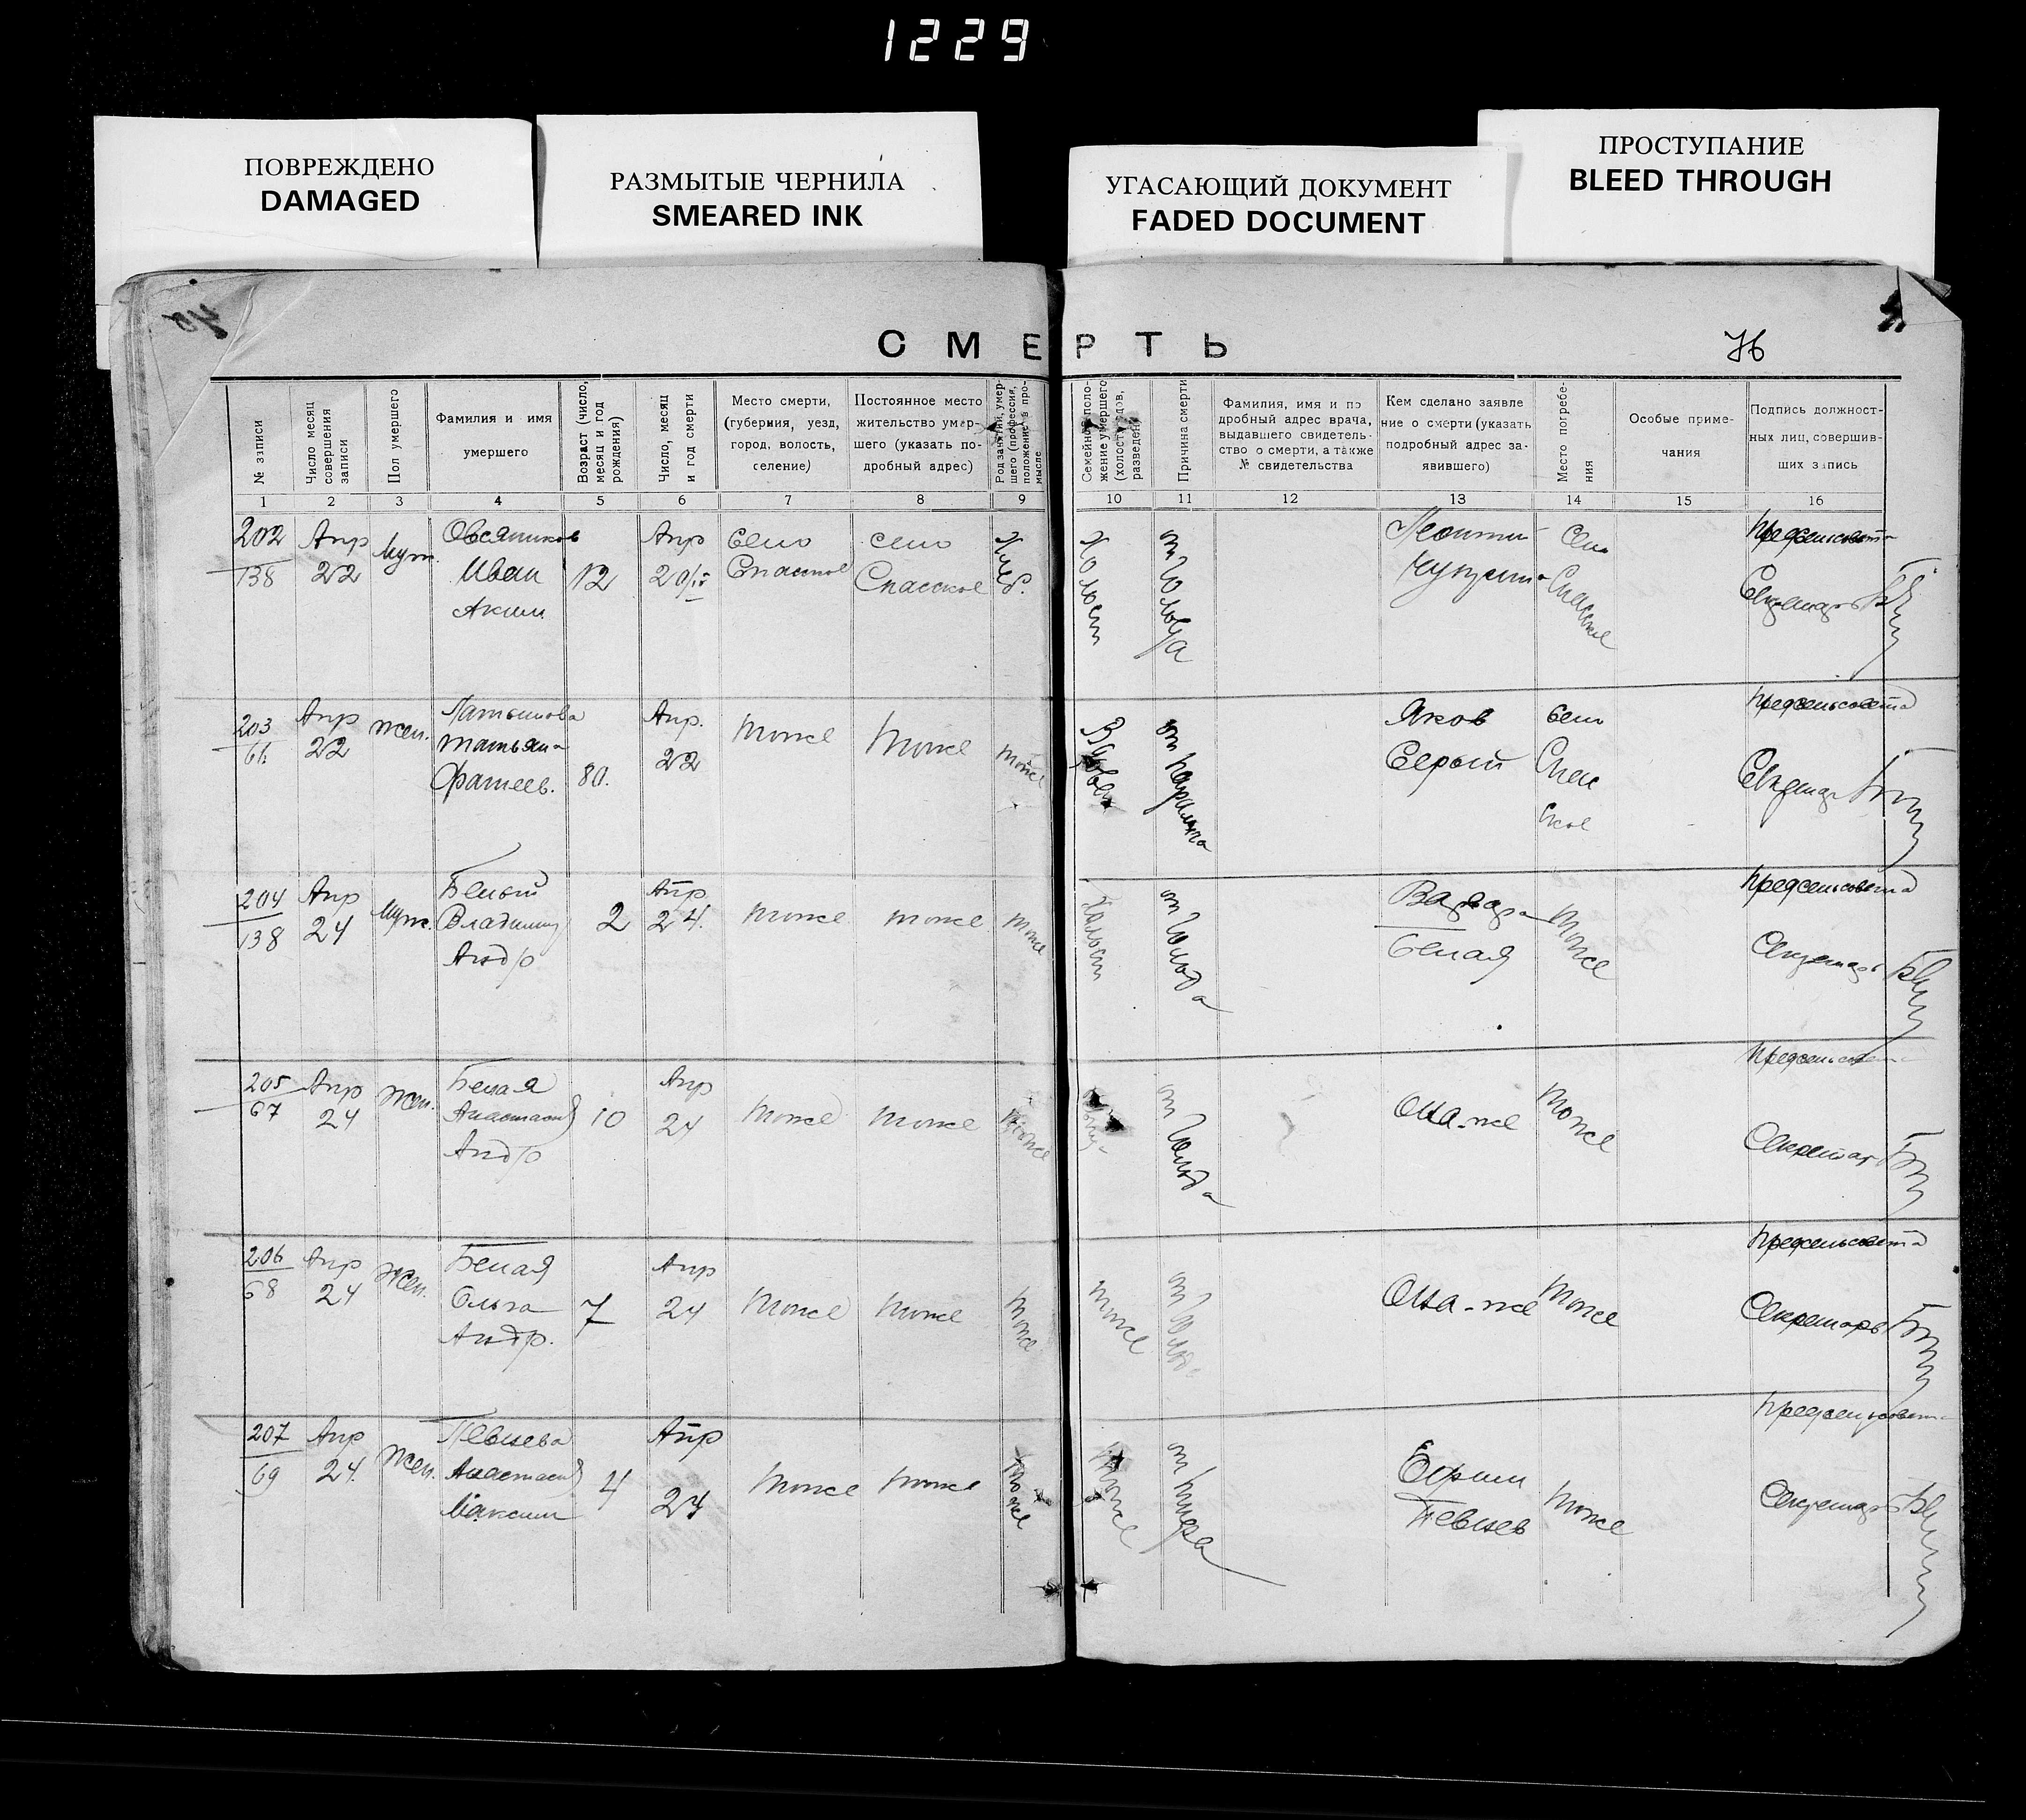 1229
ПОВРЕЖДЕНО
DAMAGED
РАЗМЫТЫЕ ЧЕРНИЛА
SMEARED INK
УГАСАЮЩИЙ ДОКУМЕНТ
FADED DOCUMENT
ПРОСТУПАНИЕ
BLEED THROUGH
СМЕРТЬ
76
№ записи
Число месяц
совершения
записи
Пол умершего
Фамилия и имя
умершего
Возраст (число,
месяц и год
рождения)
Число, месяц
и год смерти
Место смерти,
(губерния, уезд,
город, волость,
селение)
Постоянное место
жительство умер-
шего (указать по-
дробный адрес)
Род занятий, умер-
шего (профессия,
положение в про-
мысле
Семейное поло-
жение умершего
(холост, вдов,
разведен
Причина смерти
Фамилия, имя и по
дробный адрес врача,
выдавшего свидетель-
ство о смерти, а также
№ свидетельства
Кем сделано заявле
ние о смерти (указать
подробный адрес за-
явившего)
Место погребе-
ния
Особые приме-
чания
Подпись должност-
ных лиц, совершив-
ших запись
1 2 3 4 5 6 7 8 9 10 11 12 13 14 15 16
202
138
Апр
22
Муж.
Овсянников
Иван
Аким.
12
Апр
20/IV
Село
Спасское
село
Спасское
Хлеб.
Холост
от голода
Село
Спасское
Предсельсовета
Секретарь
203
Апр
22
Жен.
Татьяна
80.
Апр.
22
тоже
тоже
тоже
Вдова
от
Яков
Серый
Село
Спас
ское
Предсельсовета
Секретарь
204
138
Апр
24
Муж.
Белый
Владимир
Андр
2
Апр.
24.
тоже
тоже
тоже
Холост
от голода
Варвара
Белая
тоже
Предсельсовета
Секретарь
205
67
Апр
24
Жен.
Белая
Анастасия
Андр
10
Апр
24
тоже
тоже
тоже
от голода
Она-же
тоже
Предсельсовета
Секретарь
206
68
Апр
24
Жен.
Белая
Ольга
Андр.
7
Апр
24
тоже
тоже
тоже
тоже
от голода
Она-же
тоже
Предсельсовета
Секретарь
207
69
Апр
24.
Жен.
Певнева
Анастасия
Максим
4
Апр
24
тоже
тоже
тоже
тоже
от тифа
Ефим
Певнев
тоже
Предсельсовета
Секретарь